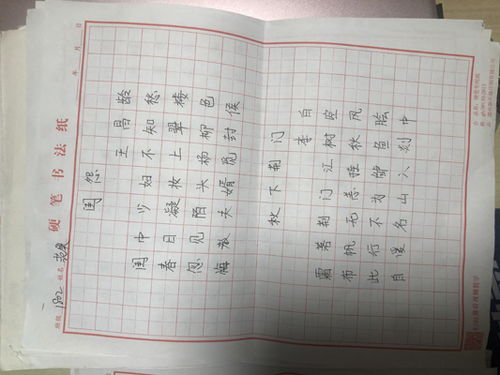 硬笔书法纸
班级 1802 姓名
年 月 日
闺怨
王昌龄
闺中少妇不知愁
春日凝妆上翠楼
忽见陌头杨柳色
悔教夫婿觅封侯
秋下荆门
李白
霜落荆门江树空
布帆无恙挂秋风
此行不为鲈鱼脍
自爱名山入剡中